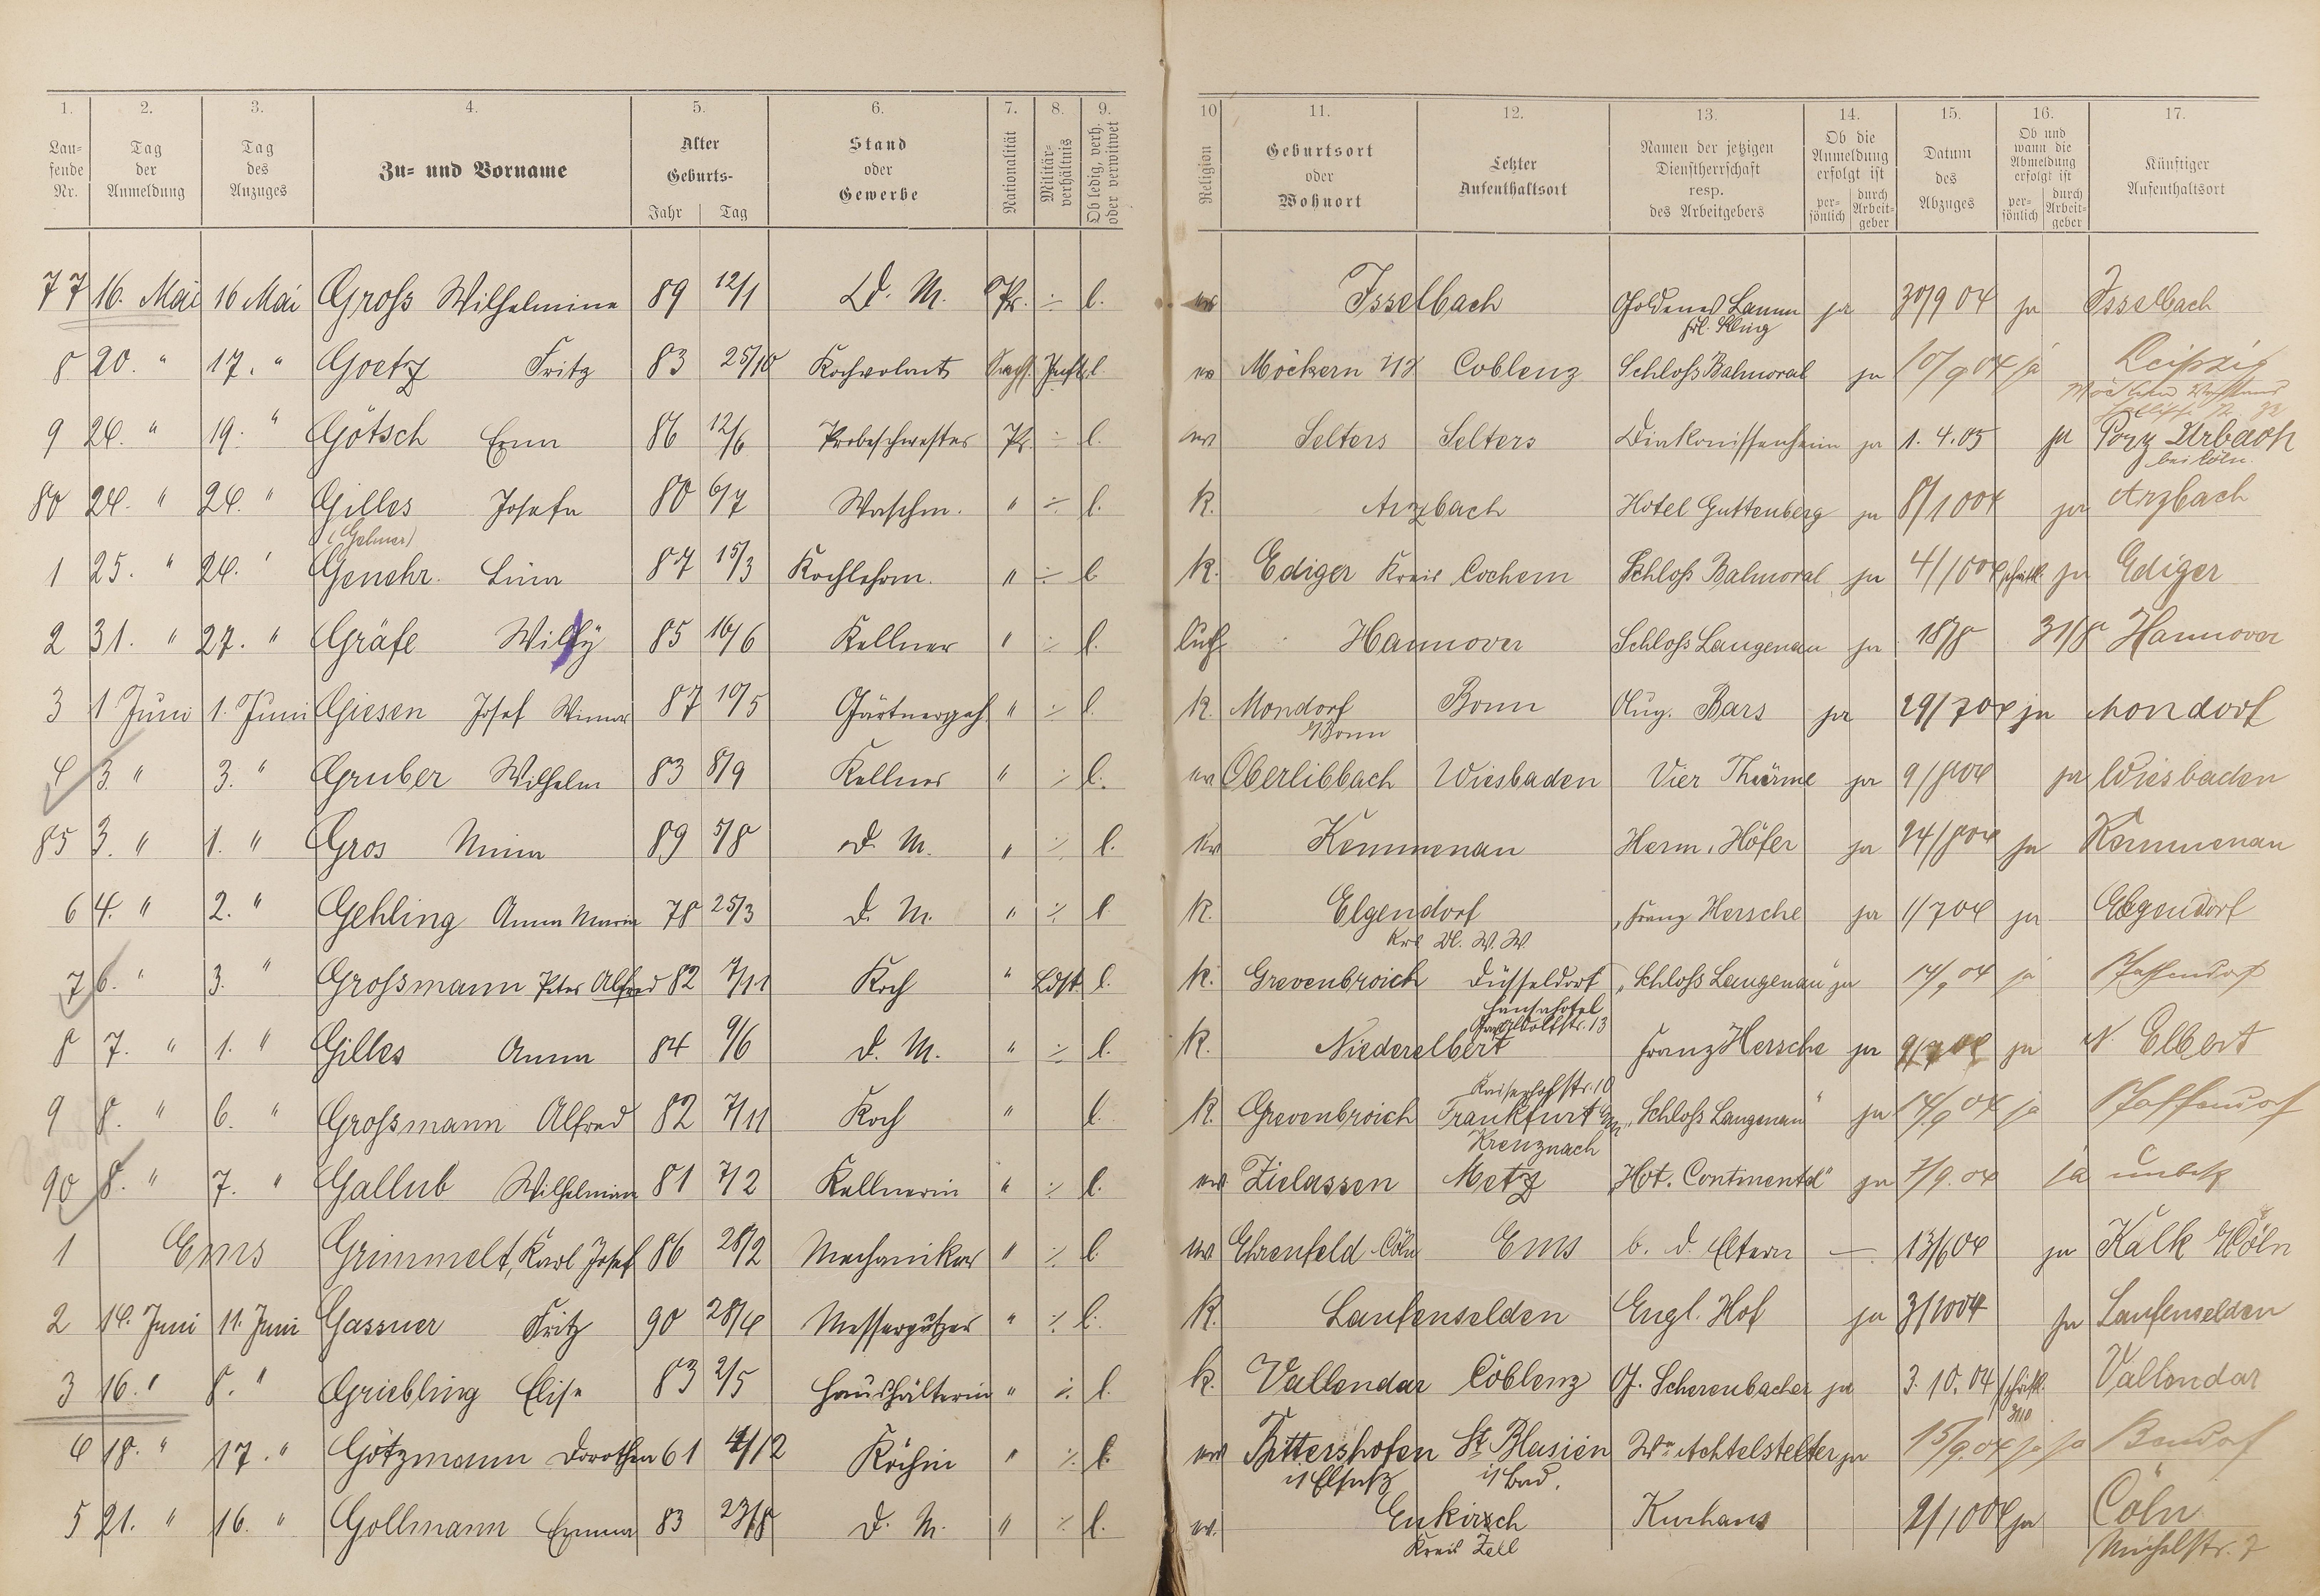 1. 2. 3. 4. 5. 6. 7. 8. 9. 10 11. 12. 13. 14. 15. 16. 17.
Laufende Nr. Tag der Anmeldung Tag des Anzuges Zu- und Vorname Alter Geburts- Jahr Tag Stand oder Gewerbe Nationalität Militär-verhältnis Ob ledig, verh. oder verwitwet Religion Geburtsort oder Wohnort Letzter Aufenthaltsort Namen der jetzigen Dienstherrschaft resp. des Arbeitgebers Ob die Anmeldung erfolgt ist per-sönlich durch Arbeit-geber Datum des Abzuges Ob und wann die Abmeldung erfolgt ist per-sönlich durch Arbeit-geber Künftiger Aufenthaltsort
77 16. Mai 16 Mai Groß Wilhelmine 89 12/1 D. M. Pr. ÷ l. ev Isselbach Goldenes Lamm ja 30/9 04 ja Isselbach
8 20. " 17. " Goetz Fritz 83 25/10 Kochvolont l. ev Möckern Coblenz Schloß Balmoral ja 10/9 04 ja Leipzig
9 24. " 19. " Götsch Erna 86 12/6 Probeschwester Pr. ÷ l. ev Selters Selters Diakonissenheim ja 1. 4. 05 ja Porz Urbach
bei Cöln
80 24. " 24. " Gilles Josefa 80 6/7 Waschm. " ÷ l. k. Arzbach Hotel Guttenberg ja 8/10 04 ja Arzbach
1 25. " 24. " Genehr Lina 87 15/3 Kochlehrm. " ÷ l k. Ediger Kreis Cochem Schloß Balmoral ja 4/10 04 schriftl. ja Ediger
2 31. " 27. " Gräfe Willy 85 16/6 Kellner " ÷ l. luth Hannover Schloß Langenau ja 18/8 31/8 Hannover
3 1 Juni 1. Juni Giesen Josef 87 10/5 Gärtnergeh " ÷ l. k. Mondorf Bonn Aug. Bars ja 29/7 04 ja Mondorf
b/Bonn
4 3. " 3. " Gruber Wilhelm 83 8/9 Kellner " ÷ l. ev Oberlibbach Wiesbaden Vier Thürme ja 9/8 04 ja Wiesbaden
85 3. " 1. " Gros Mina 89 5/8 D. M. " ÷ l. ev Kemmenau Herm. Höfer ja 24/8 04 ja Kemmenau
6 4. " 2. " Gehling Anna Maria 78 25/3 D. M. " ÷ l k. Elgendorf Franz Hersche ja 1/7 04 ja Elgendorf
7 6. " 3. " Großmann Peter Alfred 82 7/11 Koch " Ldst l. k. Grevenbroich Düsseldorf „Schloß Langenau" ja 14/9 04 ja Pfaffendorf
Hansahotel
8 7. " 1. " Gilles Anna 84 9/6 D. M. " ÷ l. k. Niederelbert Franz Hersche ja ja N. Elbert
Kaiserhofstr. 10
9 8. " 6. " Großmann Alfred 82 7/11 Koch " l. k. Grevenbroich Frankfurt a/M „Schloß Langenau" ja 14/9 04 ja Pfaffendorf
Kreuznach
90 8. " 7. " Gallub Wilhelmine 81 7/2 Kellnerin " ÷ l. ev Zielassen Metz „Hot. Continental" ja 7/9. 04 ja unbek
1 Ems Grimmelt, Karl Josef 86 28/2 Mechaniker " ÷ l. ev Ehrenfeld-Cöln Ems b. d. Eltern — 13/6 04 ja Kalk b/Köln
2 14. Juni 11. Juni Gassner Fritz 90 28/4 Messerputzer " ÷ l. k. Laufenselden Engl. Hof ja 3/10 04 ja Laufenselden
3 16. " 8. " Griebling Elise 83 2/5 Haushälterin " ÷ l. k. Vallendar Coblenz G. Scherenbacher ja 3. 10. 04 schriftl. Vallendar
4 18. " 17. " Götzmann Dorothea 61 4/12 Köchin " ÷ l. ev Rittershofen St. Blasien Ww. Achtelstetter ja 15/9. 04 ja ja Bendorf
i/ Elsaß i/ Bad.
5 21. " 16. " Gollmann Emma 83 23/8 D. M. " ÷ l. ev. Enkirsch Kurhaus 2/10 04 ja Cöln
Kreis Zell